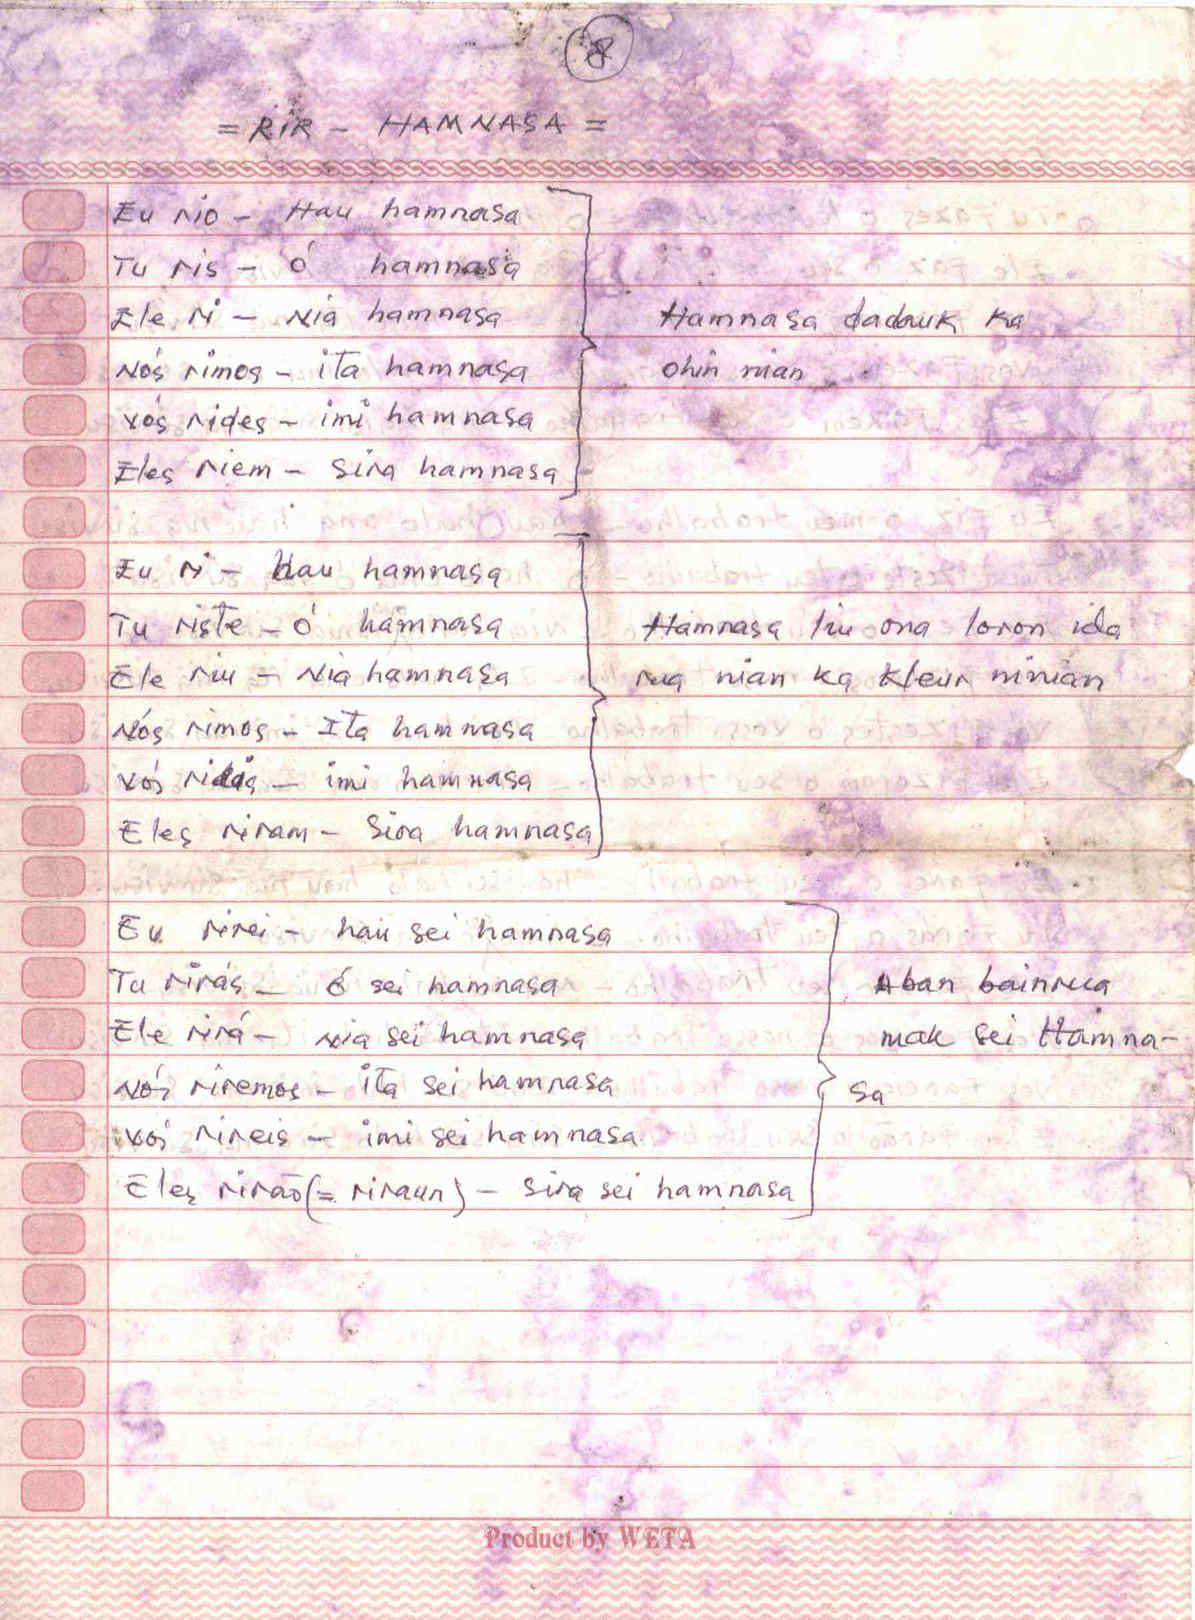 8
= RIR - HAMNASA =
Eu rio - Hau hamnasa
Tu ris - ó hamnasa
Ele ri - Nia hamnasa
Hamnasa dadauk ka
Nós rimos - ita hamnasa
ohin nian
vós rides - imi hamnasa
Eles riem - Sira hamnasa
Eu ri - Hau hamnasa
Tu riste - ó hamnasa
Hamnasa liu ona loron ida
Ele riu - Nia hamnasa
rua nian ka kleur ninian
Nós rimos - Ita hamnasa
vós - imi hamnasa
Eles riram - Sira hamnasa
Eu rirei - hau sei hamnasa
Tu rirás - ó sei hamnasa
Aban bainrua
Ele rirá - nia sei hamnasa
mak sei Hamna-
Nós riremos - ita sei hamnasa
sa
vós rireis - imi sei hamnasa
Eles rirão (= riraun) - Sira sei hamnasa
Product by WETA